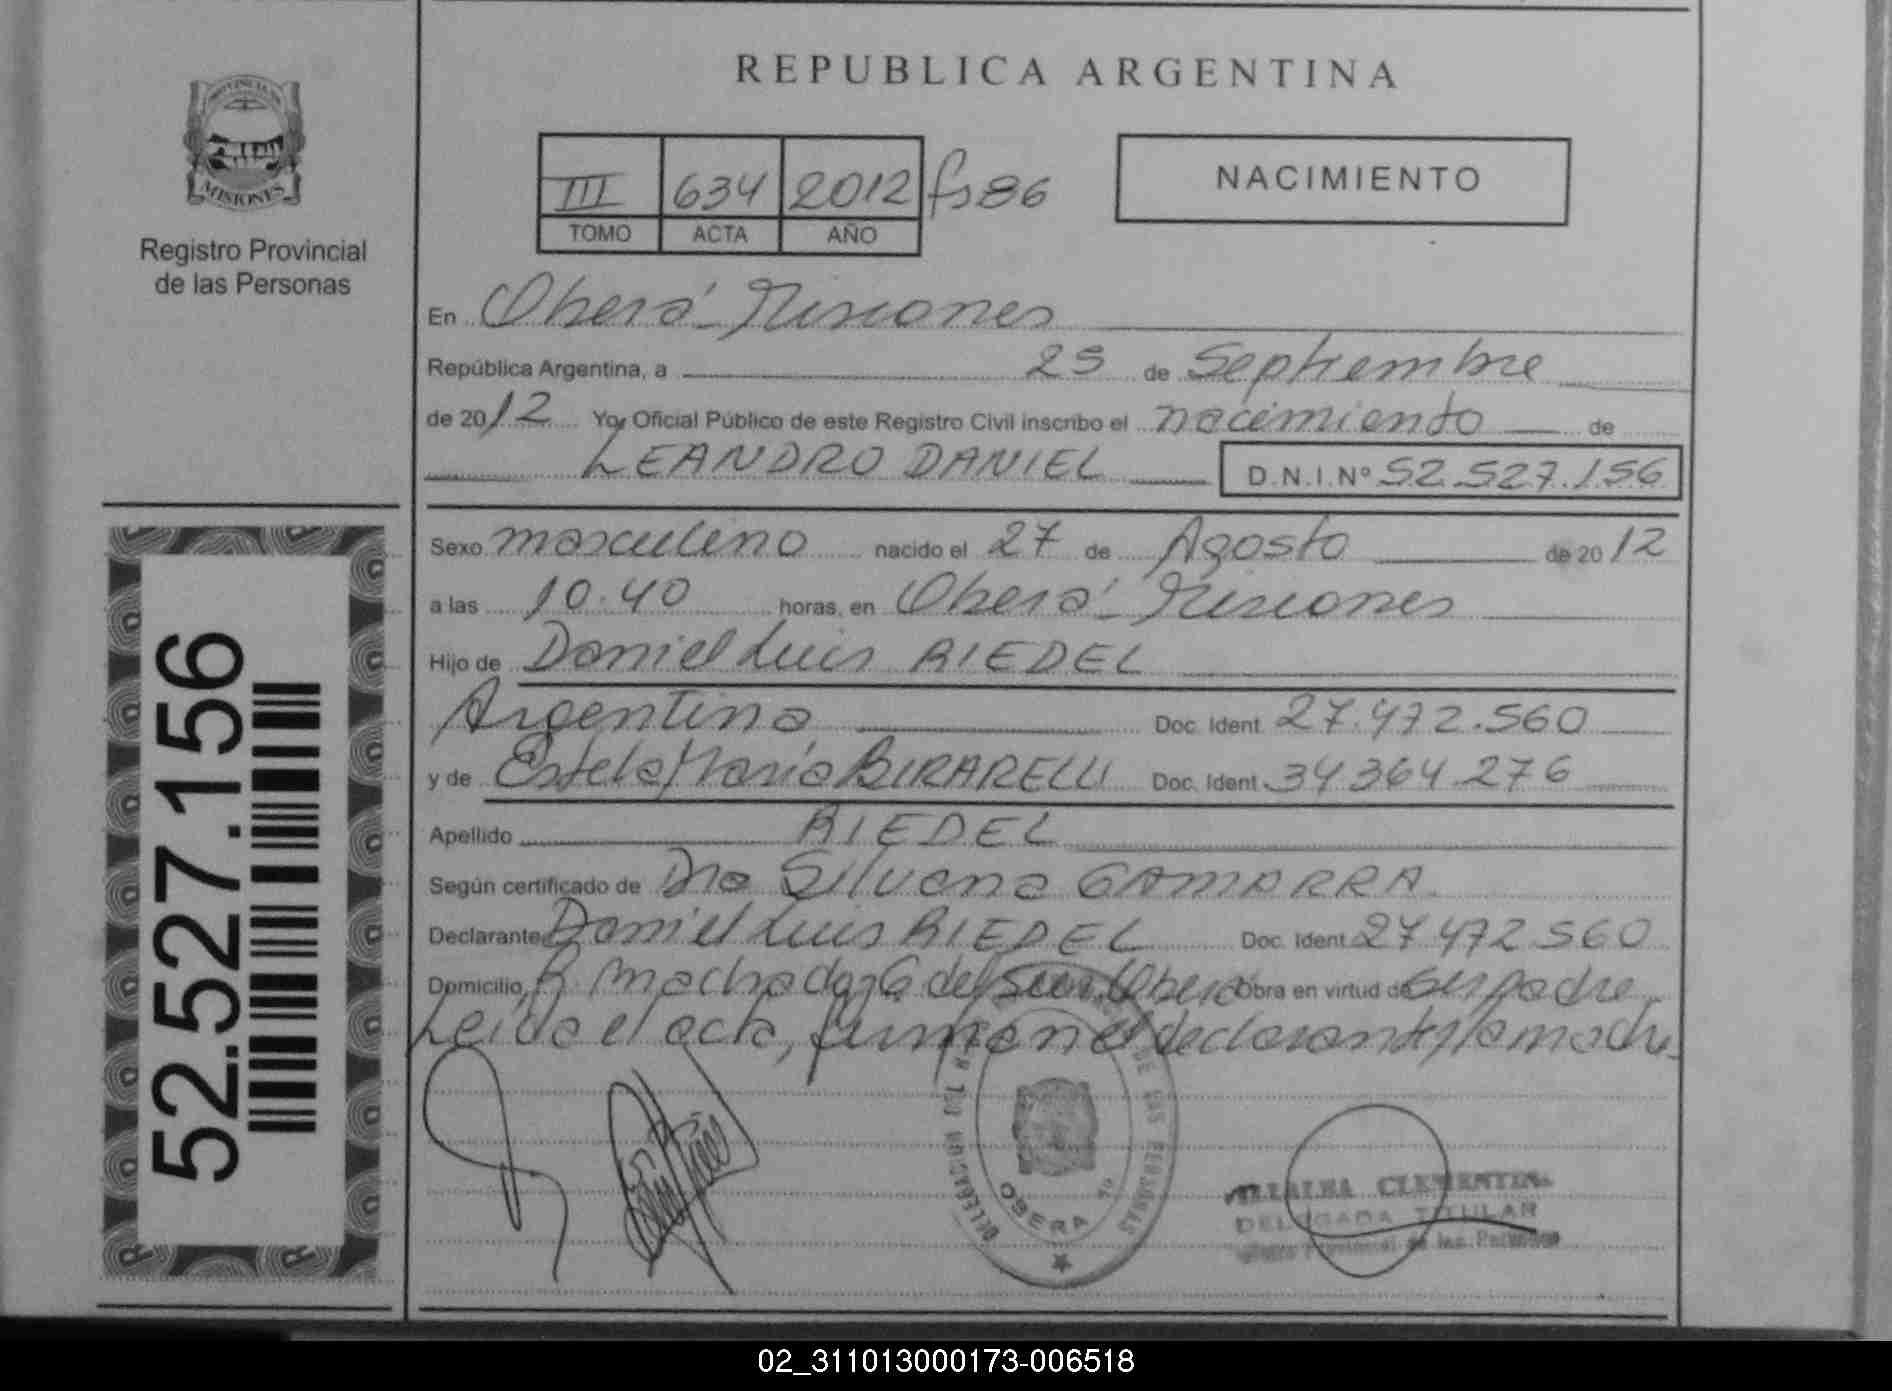 REPUBLICA ARGENTINA
PROVINCIA DE
MISIONES
Registro Provincial
de las Personas
III 634 2012 fs 86
TOMO ACTA AÑO
NACIMIENTO
En Oberá - Misiones
República Argentina, a 25 de Septiembre
de 2012 Yo, Oficial Público de este Registro Civil inscribo el nacimiento de
LEANDRO DANIEL D.N.I.Nº 52.527.156
Sexo masculino nacido el 27 de Agosto de 2012
a las 10.40 horas, en Oberá - Misiones
Hijo de Daniel Luis RIEDEL
Argentina Doc. Ident. 27.472.560
y de Estela María BIRARELLI Doc. Ident. 34.364.276
Apellido RIEDEL
Según certificado de Dra Silvana GAMARRA
Declarante Daniel Luis RIEDEL Doc. Ident. 27.472.560
Domicilio R. Machado del Sur, Oberá Obra en virtud de ser padre
Leída el acta, firman el declarante y la madre
52.527.156
DELEGACION DE LAS PERSONAS
OBERA
CLEMENTINA
DELEGADA TITULAR
Provincial de las Personas
02_311013000173-006518